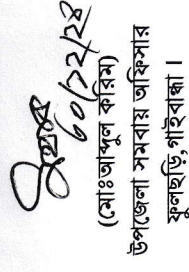 (মোঃআব্দুল করিম)
উপজেলা সমবায় অফিসার
ফুলছড়ি, গাইবান্ধা।